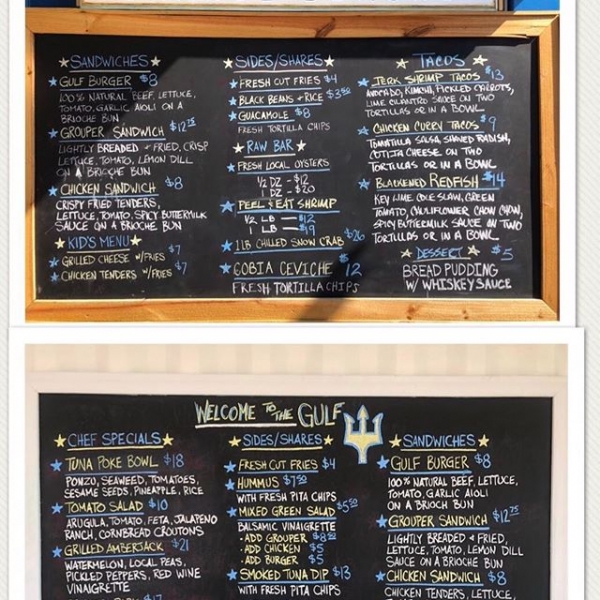 ★SANDWICHES★
★GULF BURGER $8
100% NATURAL BEEF, LETTUCE,
TOMATO, GARLIC AIOLI ON A
BRIOCHE BUN
★GROUPER SANDWICH $12.75
LIGHTLY BREADED + FRIED, CRISP
LETTUCE, TOMATO, LEMON DILL
ON A BRIOCHE BUN
★CHICKEN SANDWICH $8
CRISPY FRIED TENDERS,
LETTUCE, TOMATO, SPICY BUTTERMILK
SAUCE ON A BRIOCHE BUN
★KID'S MENU★
★GRILLED CHEESE W/FRIES $7
★CHICKEN TENDERS W/FRIES $7
★SIDES/SHARES★
★FRESH CUT FRIES $4
★BLACK BEANS + RICE $3.50
★GUACAMOLE $8
FRESH TORTILLA CHIPS
★RAW BAR★
★FRESH LOCAL OYSTERS
1/2 DZ - $12
1 DZ - $20
★PEEL & EAT SHRIMP
1/2 LB — $12
1 LB — $19
★1 LB CHILLED SNOW CRAB $26
★COBIA CEVICHE $12
FRESH TORTILLA CHIPS
★TACOS★
★JERK SHRIMP TACOS $13
AVOCADO, KIMCHI, PICKLED CARROTS,
LIME CILANTRO SAUCE ON TWO
TORTILLAS OR IN A BOWL
★CHICKEN CURRY TACOS $9
TOMATILLA SALSA, SHAVED RADISH,
COTIJA CHEESE ON TWO
TORTILLAS OR IN A BOWL
★BLACKENED REDFISH $14
KEY LIME COLE SLAW, GREEN
TOMATO, CAULIFLOWER CHOW CHOW,
SPICY BUTTERMILK SAUCE ON TWO
TORTILLAS OR IN A BOWL
★DESSERT★ $5
BREAD PUDDING
W/ WHISKEY SAUCE
WELCOME TO THE GULF
★CHEF SPECIALS★
★TUNA POKE BOWL $18
PONZU, SEAWEED, TOMATOES,
SESAME SEEDS, PINEAPPLE, RICE
★TOMATO SALAD $10
ARUGULA, TOMATO, FETA, JALAPENO
RANCH, CORNBREAD CROUTONS
★GRILLED AMBERJACK $21
WATERMELON, LOCAL PEAS,
PICKLED PEPPERS, RED WINE
VINAIGRETTE
★SIDES/SHARES★
★FRESH CUT FRIES $4
★HUMMUS $7.50
WITH FRESH PITA CHIPS
★MIXED GREEN SALAD $5.50
BALSAMIC VINAIGRETTE
- ADD GROUPER $8.25
- ADD CHICKEN $5
- ADD BURGER $5
★SMOKED TUNA DIP $13
WITH FRESH PITA CHIPS
★SANDWICHES★
★GULF BURGER $8
100% NATURAL BEEF, LETTUCE,
TOMATO, GARLIC AIOLI
ON A BRIOCH BUN
★GROUPER SANDWICH $12.75
LIGHTLY BREADED + FRIED,
LETTUCE, TOMATO, LEMON DILL
SAUCE ON A BRIOCHE BUN
★CHICKEN SANDWICH $8
CHICKEN TENDERS, LETTUCE,